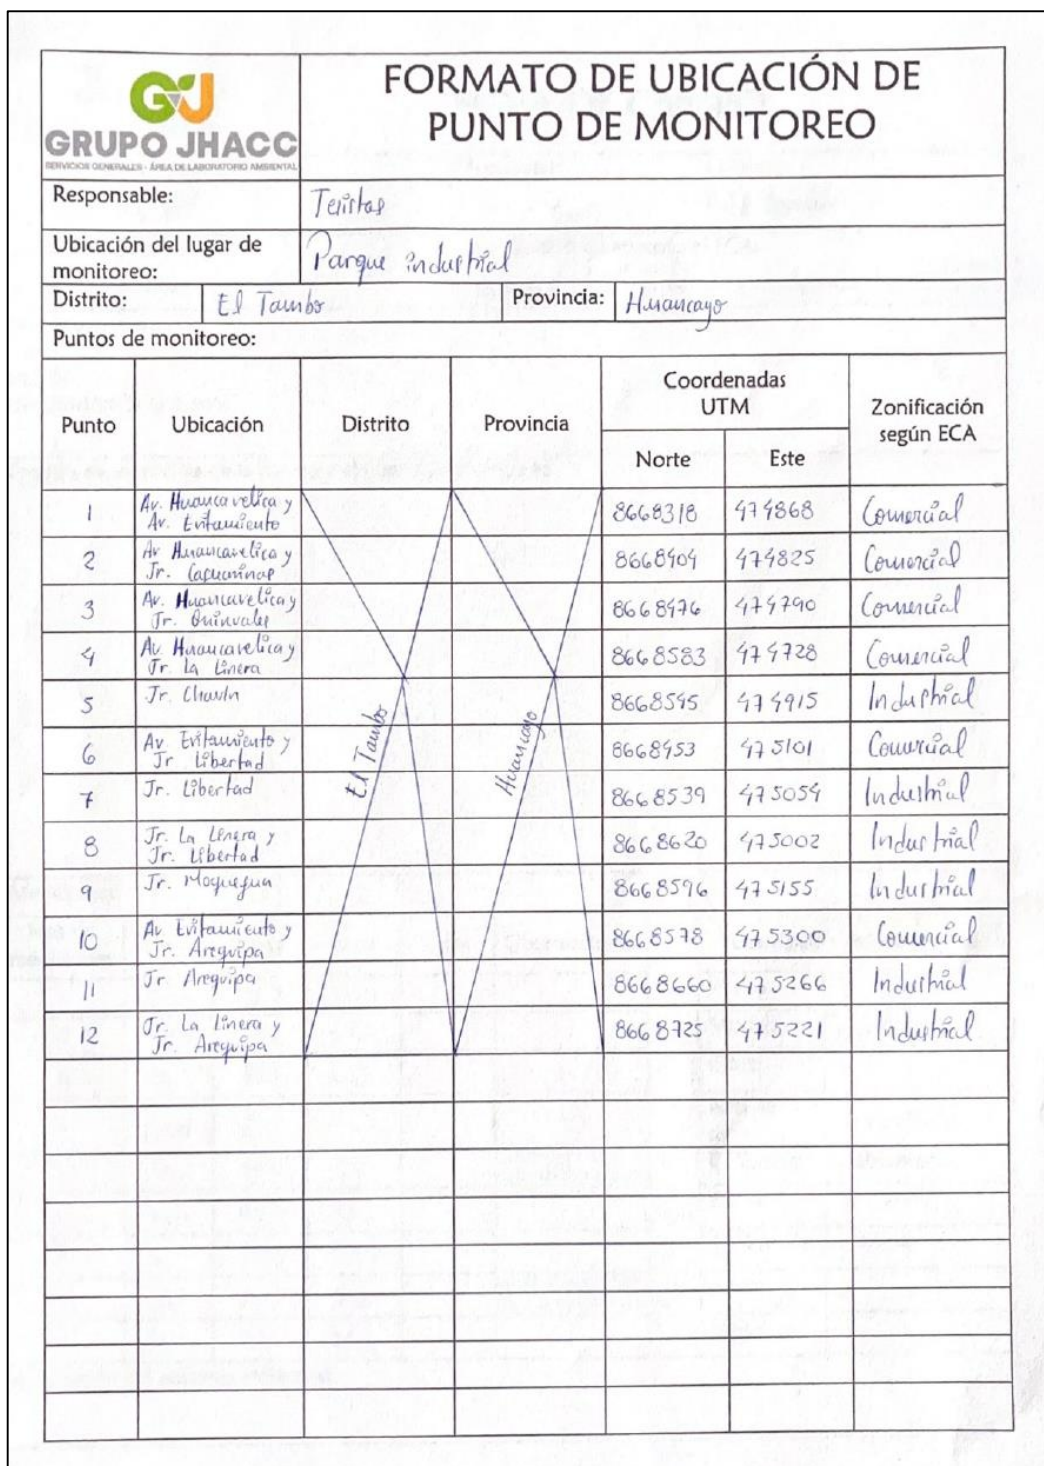 GJ
GRUPO JHACC
SERVICIOS GENERALES - ÁREA DE LABORATORIO AMBIENTAL
FORMATO DE UBICACIÓN DE
PUNTO DE MONITOREO
Responsable: Tesistas
Ubicación del lugar de
monitoreo: Parque industrial
Distrito: El Tambo Provincia: Huancayo
Puntos de monitoreo:
Punto Ubicación Distrito Provincia Coordenadas UTM Zonificación según ECA
Norte Este
El Tambo
Huancayo
1 Av. Huancavelica y Av. Evitamiento 8668318 474868 Comercial
2 Av Huancavelica y Jr. 8668404 474825 Comercial
3 Av. Huancavelica y Jr. 8668476 474790 Comercial
4 Av. Huancavelica y Jr. La Linera 8668583 474728 Comercial
5 Jr. Chavín 8668545 474915 Industrial
6 Av Evitamiento y Jr Libertad 8668453 475101 Comercial
7 Jr. Libertad 8668539 475054 Industrial
8 Jr. La Linera y Jr. Libertad 8668620 475002 Industrial
9 Jr. Moquegua 8668596 475155 Industrial
10 Av Evitamiento y Jr. Arequipa 8668578 475300 Comercial
11 Jr Arequipa 8668660 475266 Industrial
12 Jr. La Linera y Jr. Arequipa 8668725 475221 Industrial